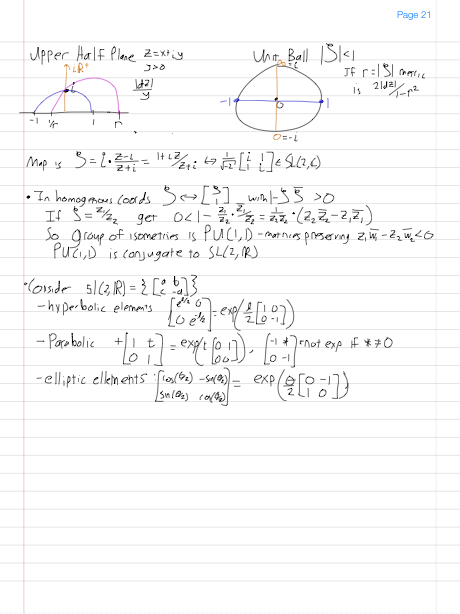 Page 21
Upper Half Plane z=x+iy
y>0
iR⁺
|dz|/y
i
-1 1/r 1 r
Unit Ball |ζ|<1
∞=i
-1 0 1
0=-i
If r=|ζ| metric
is 2|dζ|/1-r²
Map is ζ = i·(z-i)/(z+i) = (1+iz)/(z+i) ↔ 1/√2 [i 1; 1 i] ∈ SL(2,C)
• In homogenous coords ζ ↔ [ζ; 1] with 1-ζ ζ̄ >0
If ζ = z₁/z₂ get 0<1- z₁/z₂ · z̄₁/z̄₂ = 1/(z₂z̄₂) · (z₂z̄₂ - z₁z̄₁)
So group of isometries is PU(1,1) - matrices preserving z₁w̄₁ - z₂w̄₂ <0
PU(1,1) is conjugate to SL(2,R)
• Consider sl(2,R) = {[a b; c -a]}
- hyperbolic elements [e^{ℓ/2} 0; 0 e^{-ℓ/2}] = exp(ℓ/2 [1 0; 0 -1])
- Parabolic +[1 t; 0 1] = exp(t[0 1; 0 0]), [-1 *; 0 -1] not exp if * ≠ 0
- elliptic elements [cos(θ/2) -sin(θ/2); sin(θ/2) cos(θ/2)] = exp(θ/2 [0 -1; 1 0])